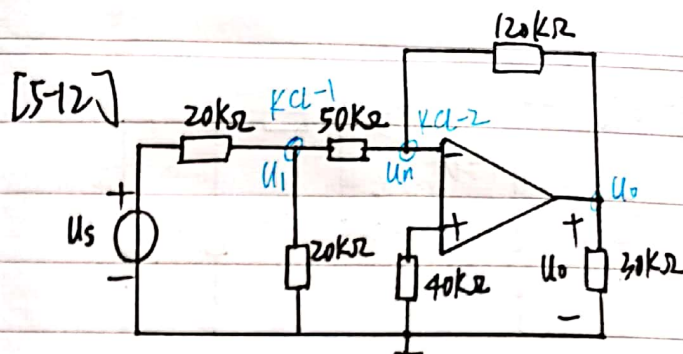 120KΩ
[5-12]
20KΩ
KCL-1
50KΩ
KCL-2
U1
Un
-
Uo
+
Us
-
20KΩ
+
40KΩ
+
Uo
-
30KΩ